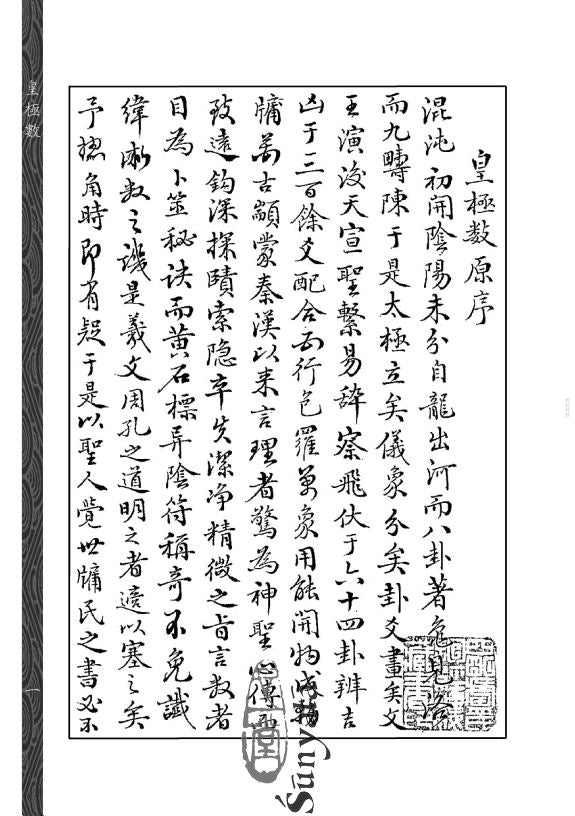 皇極數原序
混沌初開陰陽未分自龍出河而八卦著龜見洛
而九疇陳于是太極立矣儀象分矣卦爻畫矣文
王演後天宣聖繫易辭察飛伏于六十四卦辨吉
凶于三百餘爻配合五行包羅萬象用能開物成務
牖萬古顓蒙秦漢以来言理者驚為神聖心傳
致遠鈎深探賾索隐卒失潔净精微之旨言数者
目為卜筮秘訣而黄石標异陰符稱奇不免讖
緯術数之譏是羲文周孔之道明之者適以塞之矣
予揔角時即有疑于是以聖人覺世牖民之書必不
皇極數
一
Sūny